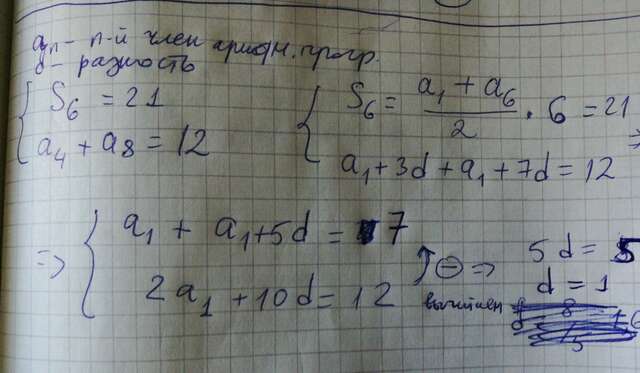 aₙ – n-й член арифм. прогр.
d – разность
{ S₆ = 21
a₄ + a₈ = 12
{ S₆ = (a₁ + a₆)/2 · 6 = 21
a₁ + 3d + a₁ + 7d = 12 =>
=> { a₁ + a₁ + 5d = 7
2a₁ + 10d = 12
↑ ⊖ => 5d = 5
вычитаем d = 1